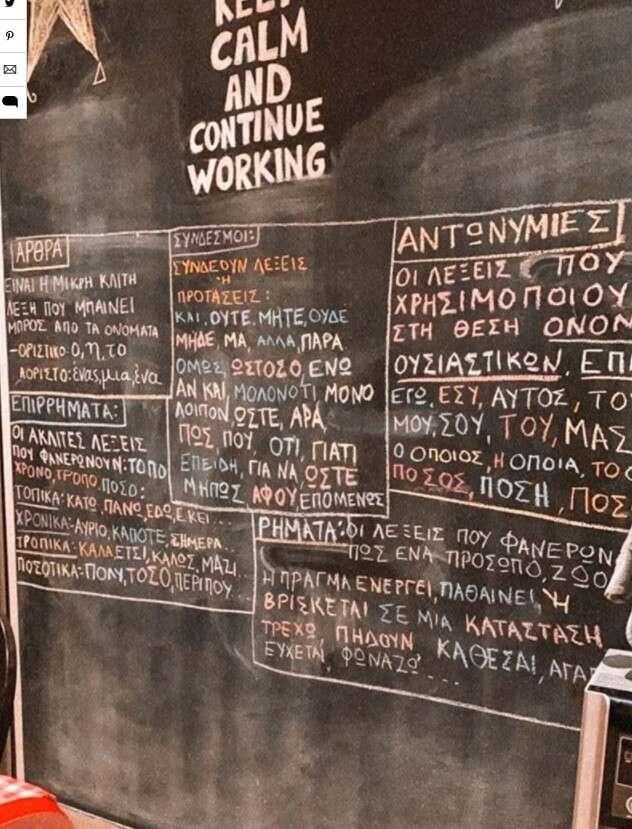 KEEP
CALM
AND
CONTINUE
WORKING
ΑΡΘΡΑ
ΕΙΝΑΙ Η ΜΙΚΡΗ ΚΛΙΤΗ
ΛΕΞΗ ΠΟΥ ΜΠΑΙΝΕΙ
ΜΠΡΟΣ ΑΠΟ ΤΑ ΟΝΟΜΑΤΑ
-ΟΡΙΣΤΙΚΟ: Ο, η, το
ΑΟΡΙΣΤΟ: ένας, μια, ένα
ΕΠΙΡΡΗΜΑΤΑ:
ΟΙ ΑΚΛΙΤΕΣ ΛΕΞΕΙΣ
ΠΟΥ ΦΑΝΕΡΩΝΟΥΝ: ΤΟΠΟ
ΧΡΟΝΟ, ΤΡΟΠΟ, ΠΟΣΟ:
ΤΟΠΙΚΑ: ΚΑΤΩ, ΠΑΝΩ, ΕΔΩ, ΕΚΕΙ...
ΧΡΟΝΙΚΑ: ΑΥΡΙΟ, ΚΑΠΟΤΕ, ΣΗΜΕΡΑ..
ΤΡΟΠΙΚΑ: ΚΑΛΑ, ΕΤΣΙ, ΚΑΛΩΣ, ΜΑΖΙ...
ΠΟΣΟΤΙΚΑ: ΠΟΛΥ, ΤΟΣΟ, ΠΕΡΙΠΟΥ...
ΣΥΝΔΕΣΜΟΙ:
ΣΥΝΔΕΟΥΝ ΛΕΞΕΙΣ
Ή
ΠΡΟΤΑΣΕΙΣ:
ΚΑΙ, ΟΥΤΕ, ΜΗΤΕ, ΟΥΔΕ
ΜΗΔΕ, ΜΑ, ΑΛΛΑ, ΠΑΡΑ
ΟΜΩΣ, ΩΣΤΟΣΟ, ΕΝΩ
ΑΝ ΚΑΙ, ΜΟΛΟΝΟΤΙ ΜΟΝΟ
ΛΟΙΠΟΝ, ΩΣΤΕ, ΑΡΑ,
ΠΩΣ, ΠΟΥ, ΟΤΙ, ΓΙΑΤΙ
ΕΠΕΙΔΗ, ΓΙΑ ΝΑ, ΩΣΤΕ
ΜΗΠΩΣ ΑΦΟΥ, ΕΠΟΜΕΝΩΣ
ΑΝΤΩΝΥΜΙΕΣ
ΟΙ ΛΕΞΕΙΣ ΠΟΥ
ΧΡΗΣΙΜΟΠΟΙΟΥ
ΣΤΗ ΘΕΣΗ ΟΝΟΜ
ΟΥΣΙΑΣΤΙΚΩΝ, ΕΠΙ
ΕΓΩ, ΕΣΥ, ΑΥΤΟΣ, ΤΟ
ΜΟΥ, ΣΟΥ, ΤΟΥ, ΜΑΣ
Ο ΟΠΟΙΟΣ, Η ΟΠΟΙΑ, ΤΟ Ο
ΠΟΣΟΣ, ΠΟΣΗ, ΠΟΣ
ΡΗΜΑΤΑ: ΟΙ ΛΕΞΕΙΣ ΠΟΥ ΦΑΝΕΡΩΝ
ΠΩΣ ΕΝΑ ΠΡΟΣΩΠΟ, ΖΩΟ
Η ΠΡΑΓΜΑ ΕΝΕΡΓΕΙ, ΠΑΘΑΙΝΕΙ, Ή
ΒΡΙΣΚΕΤΑΙ ΣΕ ΜΙΑ ΚΑΤΑΣΤΑΣΗ
ΤΡΕΧΩ, ΠΗΔΟΥΝ ΚΑΘΕΣΑΙ, ΑΓΑΠ
ΕΥΧΕΤΑΙ, ΦΩΝΑΖΩ....